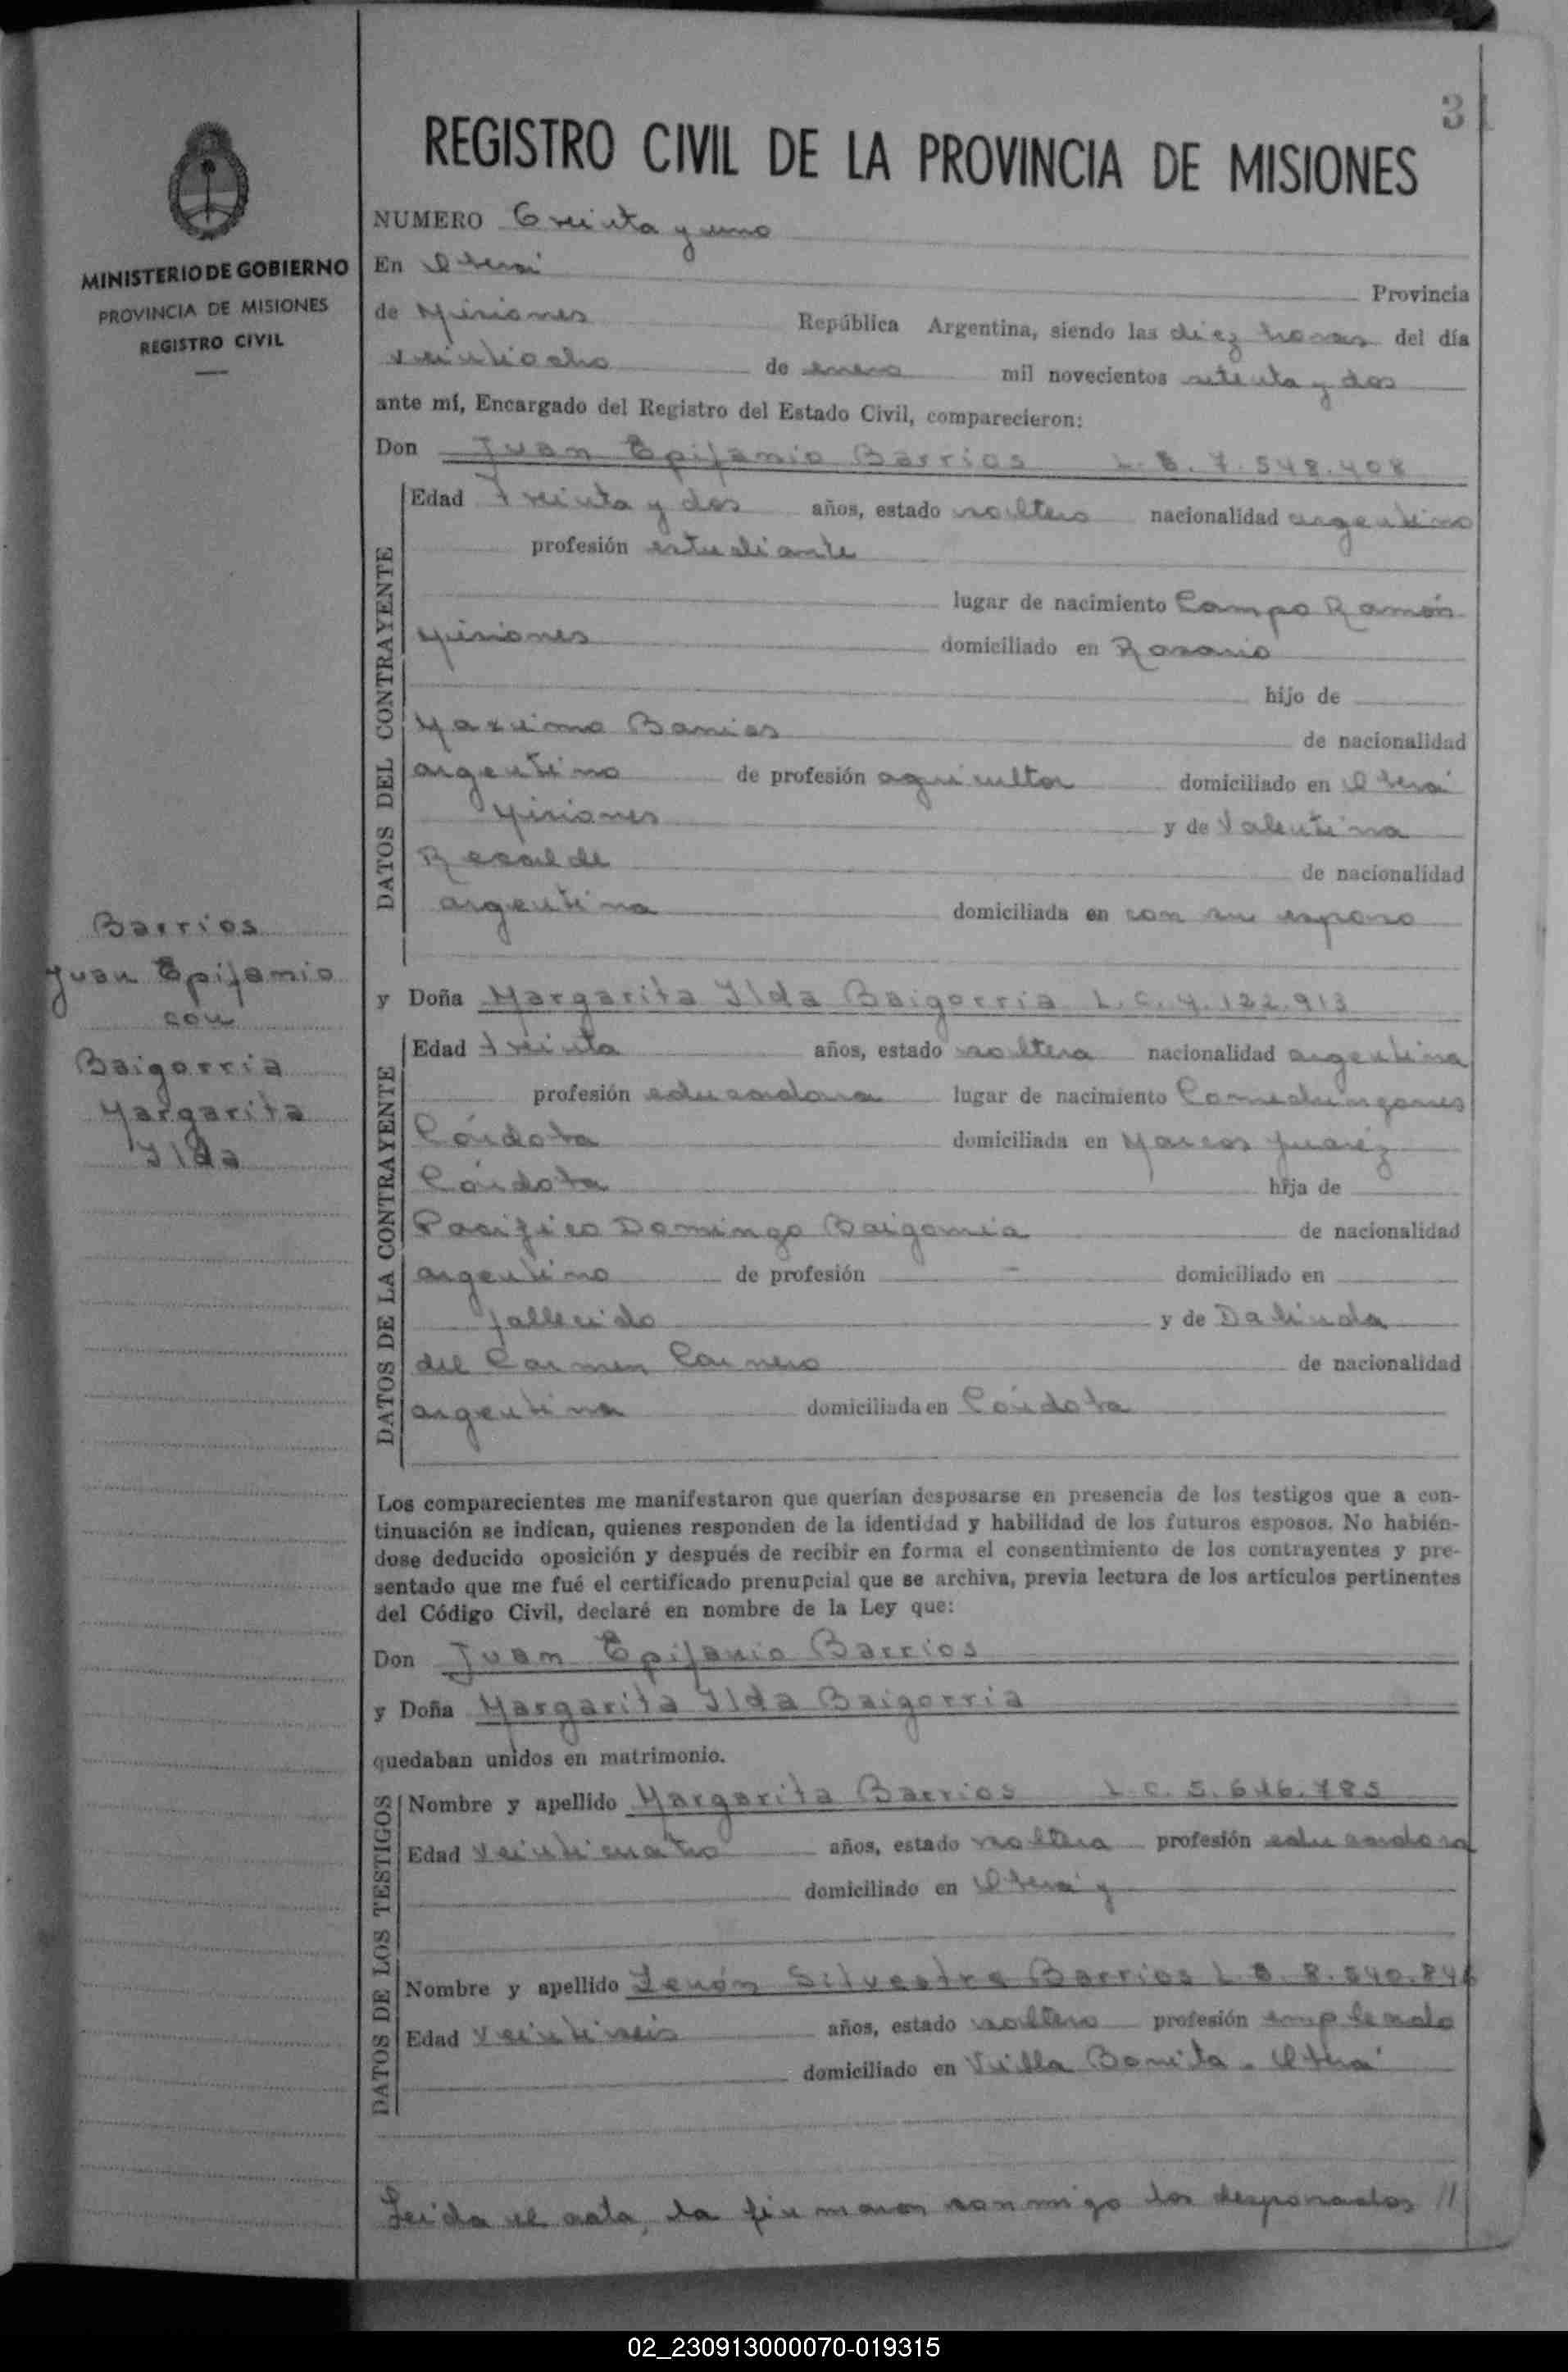 31
REGISTRO CIVIL DE LA PROVINCIA DE MISIONES
MINISTERIO DE GOBIERNO
PROVINCIA DE MISIONES
REGISTRO CIVIL
NUMERO Treinta y uno
En Oberá Provincia
de Misiones República Argentina, siendo las diez horas del día
veintiocho de enero mil novecientos setenta y dos
ante mí, Encargado del Registro del Estado Civil, comparecieron:
Don Juan Epifanio Barrios L.E. 7.548.408
DATOS DEL CONTRAYENTE
Edad Treinta y dos años, estado soltero nacionalidad argentino
profesión estudiante
lugar de nacimiento Campo Ramón
Misiones domiciliado en Rosario
hijo de
Maximo Barrios de nacionalidad
argentino de profesión agricultor domiciliado en Oberá
Misiones y de Valentina
Recalde de nacionalidad
argentina domiciliada en con su esposo
Barrios
Juan Epifanio
con
Baigorria
Margarita
Ilda
y Doña Margarita Ilda Baigorria L.C. 4.122.913
DATOS DE LA CONTRAYENTE
Edad treinta años, estado soltera nacionalidad argentina
profesión educadora lugar de nacimiento Comechingones
Córdoba domiciliada en Marcos Juarez
Córdoba hija de
Pacifico Domingo Baigorria de nacionalidad
argentino de profesión - domiciliado en
fallecido y de Dalinda
del Carmen Carnero de nacionalidad
argentina domiciliada en Córdoba
Los comparecientes me manifestaron que querían desposarse en presencia de los testigos que a con-
tinuación se indican, quienes responden de la identidad y habilidad de los futuros esposos. No habién-
dose deducido oposición y después de recibir en forma el consentimiento de los contrayentes y pre-
sentado que me fué el certificado prenupcial que se archiva, previa lectura de los artículos pertinentes
del Código Civil, declaré en nombre de la Ley que:
Don Juan Epifanio Barrios
y Doña Margarita Ilda Baigorria
quedaban unidos en matrimonio.
DATOS DE LOS TESTIGOS
Nombre y apellido Margarita Barrios L.C. 5.616.785
Edad veinticuatro años, estado soltera profesión educadora
domiciliado en Oberá y
Nombre y apellido Zenón Silvestre Barrios L.E. 8.540.846
Edad veintiseis años, estado soltero profesión empleado
domiciliado en Villa Bonita - Oberá
Leida el acta, la firmaron conmigo los desposados //
02_230913000070-019315